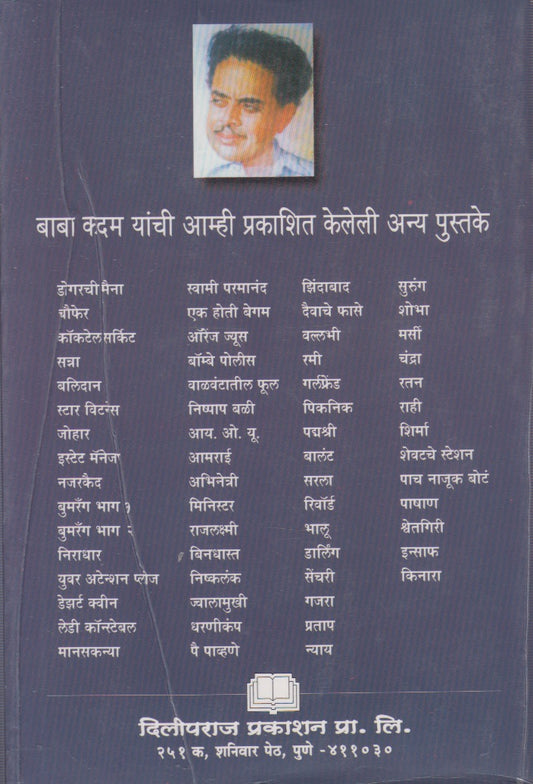 बाबा कदम यांची आम्ही प्रकाशित केलेली अन्य पुस्तके
डोंगरची मैना
चौफेर
कॉकटेल सर्किट
सत्रा
बलिदान
स्टार विटनेस
जोहार
इस्टेट मॅनेज
नजरकैद
बुमरँग भाग १
बुमरँग भाग २
निराधार
युवर अटेन्शन प्लीज
डेझर्ट क्वीन
लेडी कॉन्स्टेबल
मानसकन्या
स्वामी परमानंद
एक होती बेगम
ऑरेंज ज्यूस
बॉम्बे पोलीस
वाळवंटातील फूल
निष्पाप बळी
आय. ओ. यू.
आमराई
अभिनेत्री
मिनिस्टर
राजलक्ष्मी
बिनधास्त
निष्कलंक
ज्वालामुखी
धरणीकंप
पै पाव्हणे
झिंदाबाद
दैवाचे फासे
वल्लभी
रमी
गर्लफ्रेंड
पिकनिक
पद्मश्री
बालंट
सरला
रिवॉर्ड
भालू
डार्लिंग
सेंचरी
गजरा
प्रताप
न्याय
सुरुंग
शोभा
मर्सी
चंद्रा
रतन
राही
शिर्मा
शेवटचे स्टेशन
पाच नाजूक बोटं
पाषाण
श्वेतगिरी
इन्साफ
किनारा
दिलीपराज प्रकाशन प्रा. लि.
२५१ क, शनिवार पेठ, पुणे -४११०३०